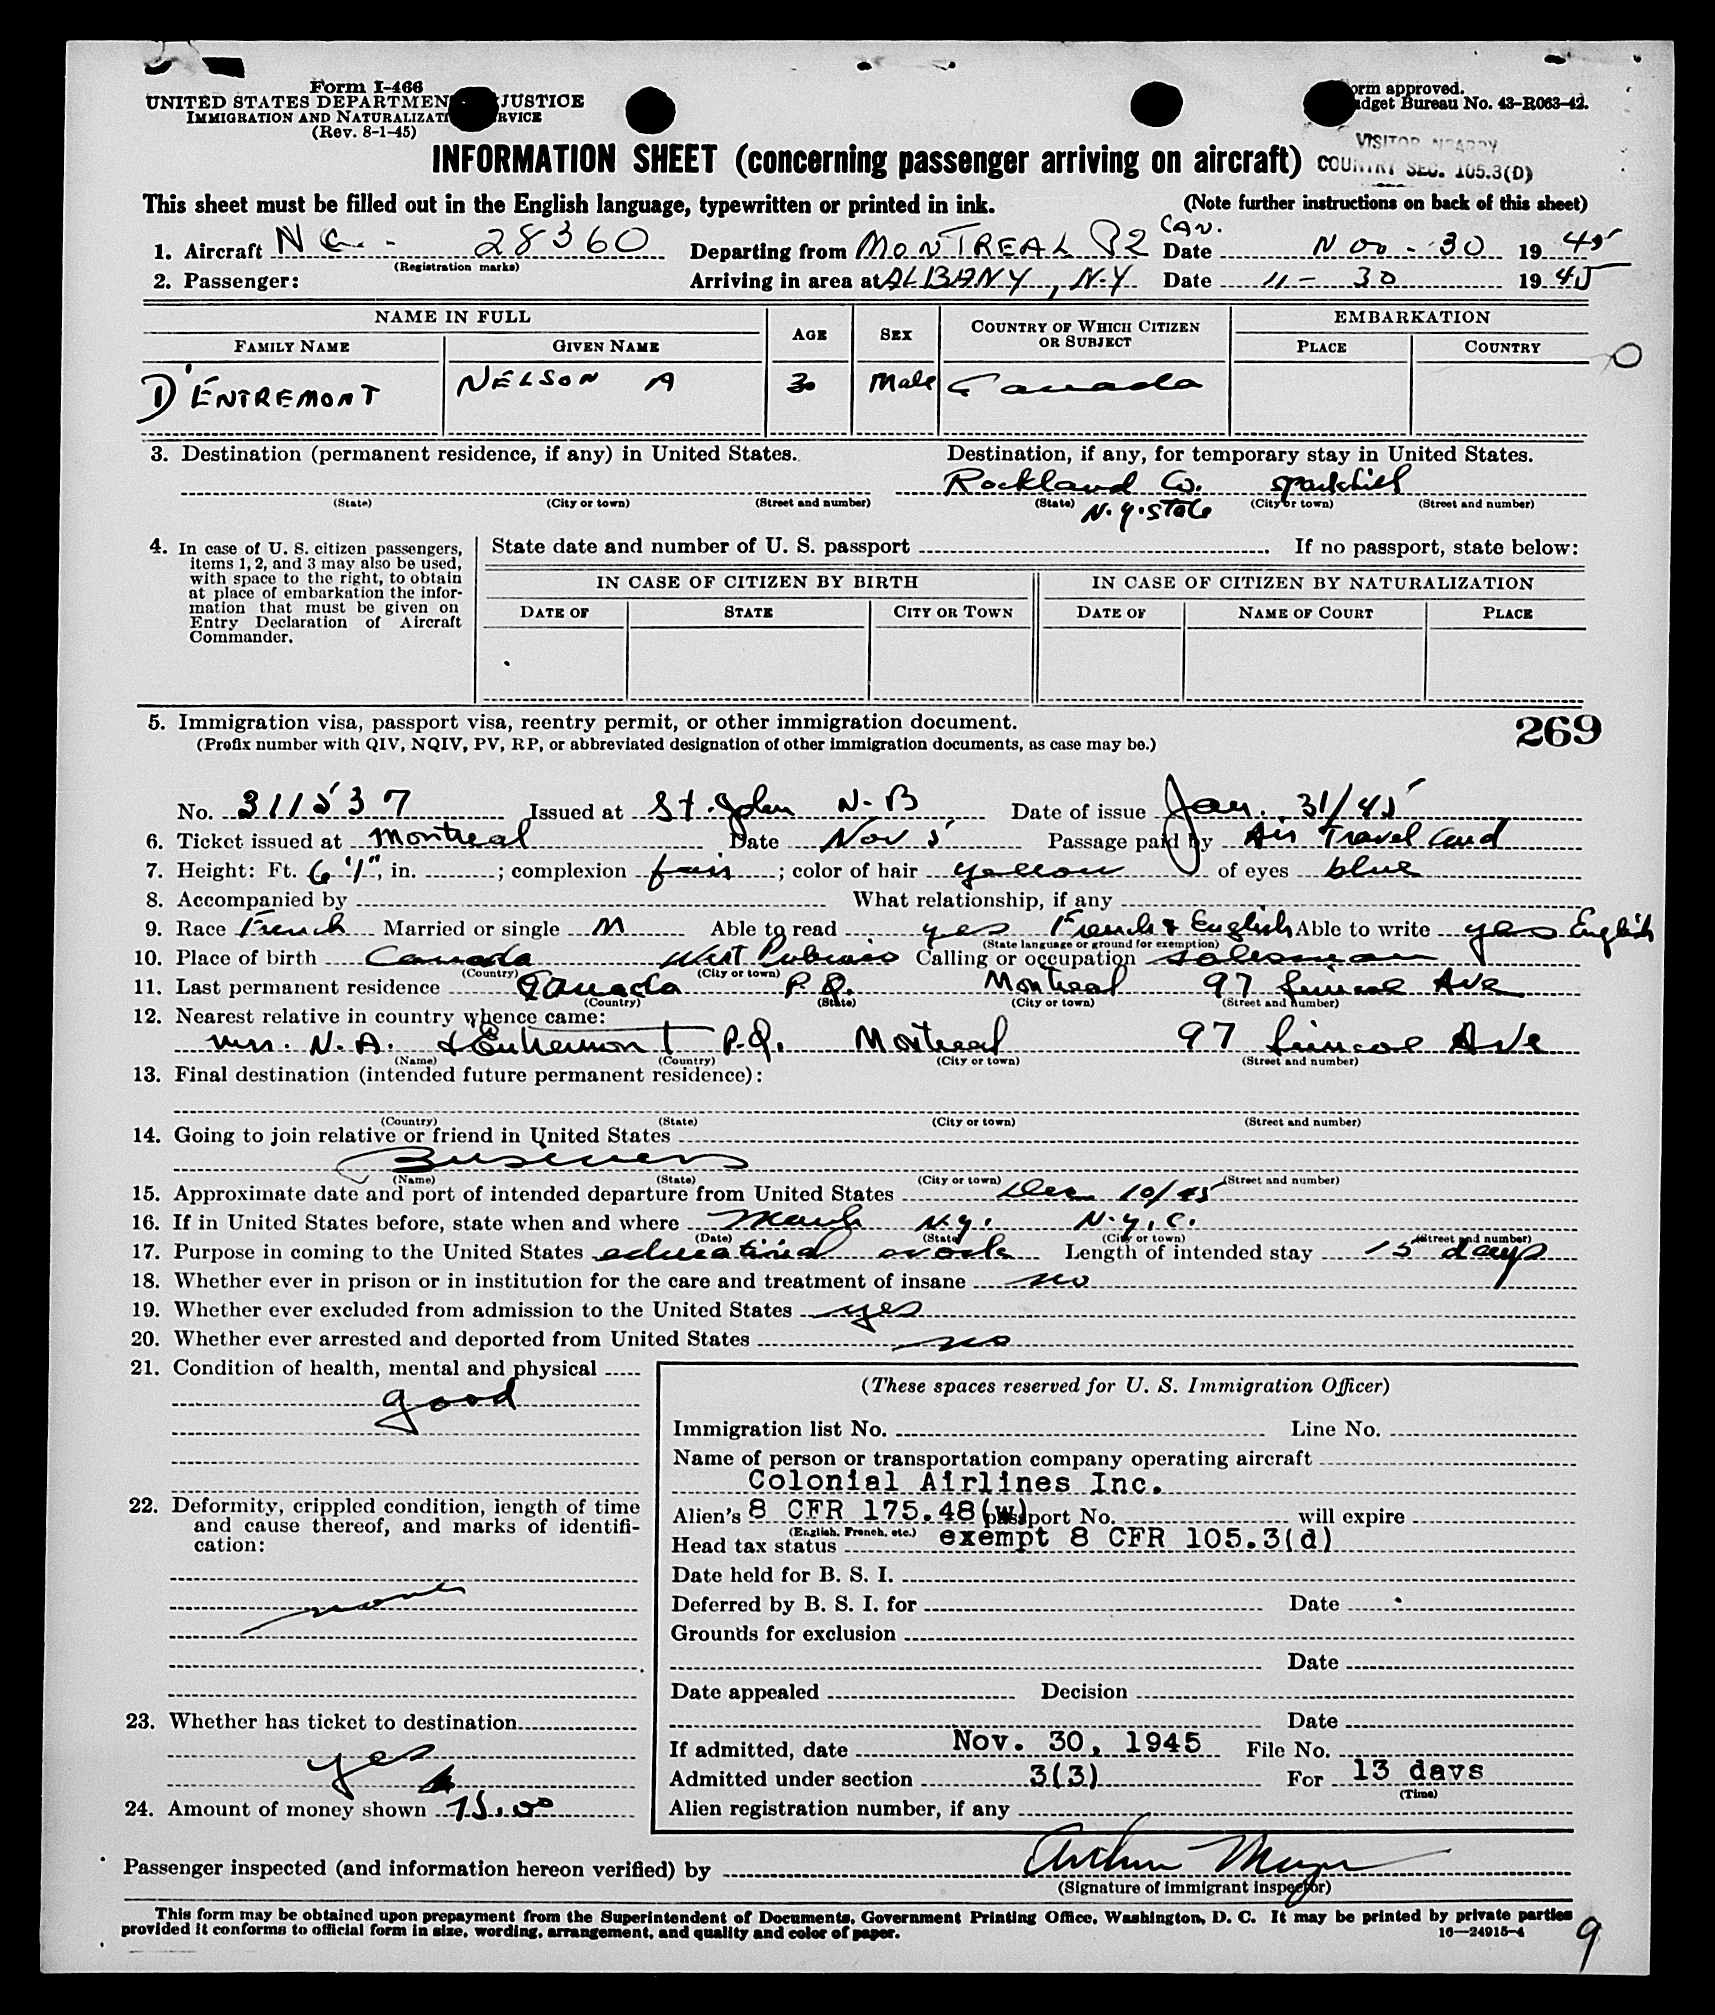 Form I-466
UNITED STATES DEPARTMENT JUSTICE
IMMIGRATION AND NATURALIZATI RVICE
(Rev. 8-1-45)
orm approved.
dget Bureau No. 43-R063-42.
VISITOR NEARBY
COUNTRY SEC. 105.3(D)
INFORMATION SHEET (concerning passenger arriving on aircraft)
This sheet must be filled out in the English language, typewritten or printed in ink. (Note further instructions on back of this sheet)
1. Aircraft NC - 28360 Departing from MONTREAL P2 CAN. Date Nov - 30 19 45
(Registration marks)
2. Passenger: Arriving in area at ALBANY, N.Y Date 11 - 30 19 45
NAME IN FULL AGE SEX COUNTRY OF WHICH CITIZEN OR SUBJECT EMBARKATION
FAMILY NAME GIVEN NAME PLACE COUNTRY
D'ENTREMONT NELSON A 30 Male Canada
3. Destination (permanent residence, if any) in United States. Destination, if any, for temporary stay in United States.
Rockland Co. Sparkhill
(State) (City or town) (Street and number) (State) (City or town) (Street and number)
N.Y. State
4. In case of U. S. citizen passengers, items 1, 2, and 3 may also be used, with space to the right, to obtain at place of embarkation the information that must be given on Entry Declaration of Aircraft Commander.
State date and number of U. S. passport . If no passport, state below:
IN CASE OF CITIZEN BY BIRTH IN CASE OF CITIZEN BY NATURALIZATION
DATE OF STATE CITY OR TOWN DATE OF NAME OF COURT PLACE
5. Immigration visa, passport visa, reentry permit, or other immigration document.
(Prefix number with QIV, NQIV, PV, RP, or abbreviated designation of other immigration documents, as case may be.)
269
No. 311537 Issued at St. John N-B Date of issue Jan. 31/45
6. Ticket issued at Montreal Date Nov 5 Passage paid by Air Travel Card
7. Height: Ft. 6'1", in. ; complexion fair ; color of hair yellow of eyes blue
8. Accompanied by What relationship, if any
9. Race French Married or single M Able to read yes French & English Able to write yes English
(State language or ground for exemption)
10. Place of birth Canada West Pubnico Calling or occupation salesman
(Country) (City or town)
11. Last permanent residence Canada P.Q. Montreal 97 Ave
(Country) (State) (City or town) (Street and number)
12. Nearest relative in country whence came:
Mrs. N.A. d'Entremont P.Q. Montreal 97 Ave
(Name) (Country) (City or town) (Street and number)
13. Final destination (intended future permanent residence):
(Country) (State) (City or town) (Street and number)
14. Going to join relative or friend in United States
Business
(Name) (State) (City or town) (Street and number)
15. Approximate date and port of intended departure from United States Dec 10/45
16. If in United States before, state when and where March N.Y. N.Y.C.
(Date) (State) (City or town) (Street and number)
17. Purpose in coming to the United States educational work Length of intended stay 15 days
18. Whether ever in prison or in institution for the care and treatment of insane no
19. Whether ever excluded from admission to the United States yes
20. Whether ever arrested and deported from United States no
21. Condition of health, mental and physical
good
22. Deformity, crippled condition, length of time and cause thereof, and marks of identification:
none
23. Whether has ticket to destination
yes
24. Amount of money shown 75.00
(These spaces reserved for U. S. Immigration Officer)
Immigration list No. Line No.
Name of person or transportation company operating aircraft
Colonial Airlines Inc.
Alien's 8 CFR 175.48(W) passport No. will expire
(English, French, etc.)
Head tax status exempt 8 CFR 105.3(d)
Date held for B. S. I.
Deferred by B. S. I. for Date
Grounds for exclusion
Date
Date appealed Decision
Date
If admitted, date Nov. 30, 1945 File No.
Admitted under section 3(3) For 13 days
(Time)
Alien registration number, if any
Passenger inspected (and information hereon verified) by Arthur
(Signature of immigrant inspector)
This form may be obtained upon prepayment from the Superintendent of Documents, Government Printing Office, Washington, D. C. It may be printed by private parties
provided it conforms to official form in size, wording, arrangement, and quality and color of paper.
16—24915-4
9